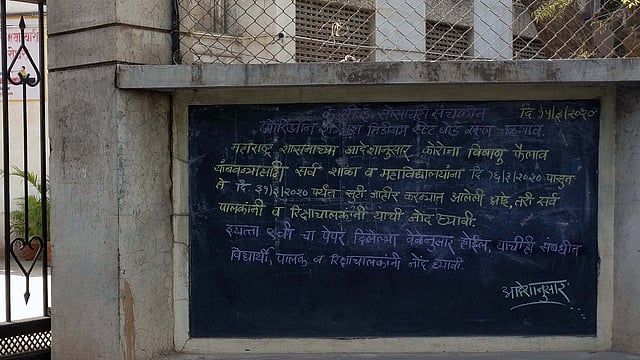 के. सी. ई. सोसायटी संचलित दि १५/३/२०२०
ओरियॉन इंग्लिश मिडीयम स्टेट बोर्ड स्कूल जळगाव.
महाराष्ट्र शासनाच्या आदेशानुसार कोरोना विषाणू फैलाव
थांबवण्यासाठी सर्व शाळा व महाविद्यालयांना दि १६/३/२०२० पासून
ते दि ३१/३/२०२० पर्यंत सुटी जाहीर करण्यात आलेली आहे, तरी सर्व
पालकांनी व रिक्षाचालकांनी याची नोंद घ्यावी.
इयत्ता ९वी चा पेपर दिलेल्या वेळेनुसार होईल, याचीही संबधीत
विद्यार्थी, पालक व रिक्षाचालकांनी नोंद घ्यावी.
आदेशानुसार